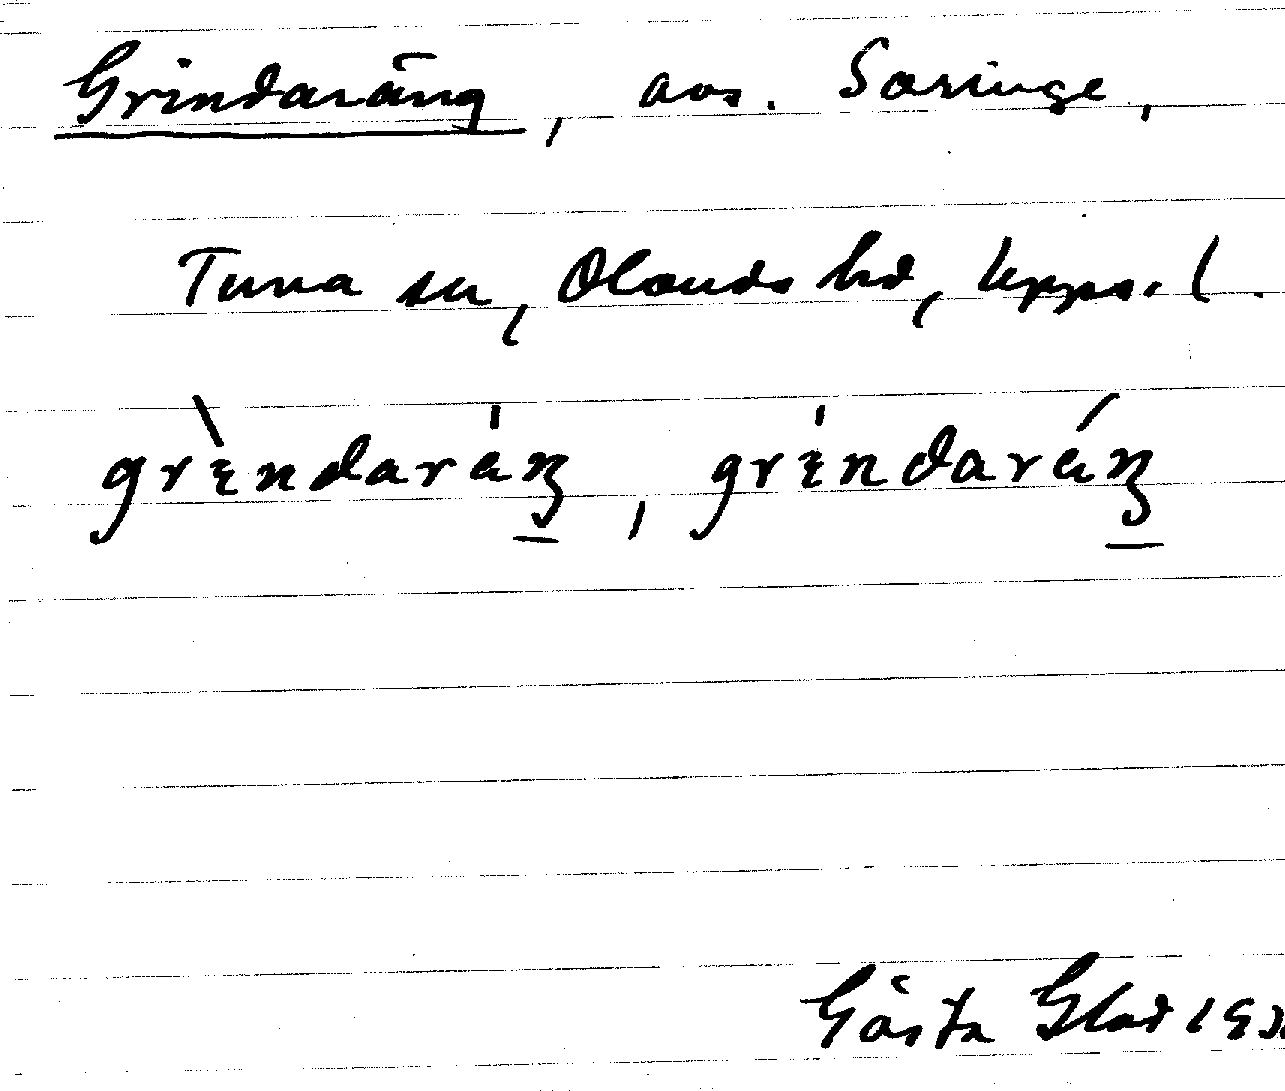 Grindaräng, avs. Søringe,
Tuna sn, Olands hd, Upps. l.
grɩ̀ndaräŋ, grɩ́ndaräŋ
Gösta Glad 19